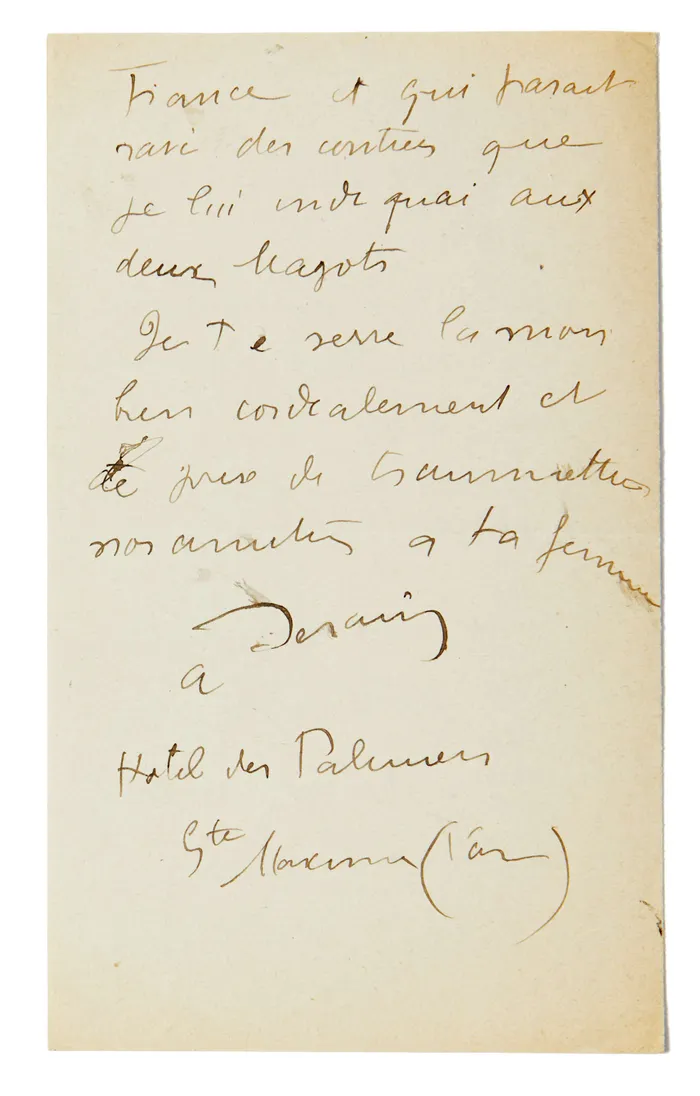 France et qui parait
ravi des contrées que
je lui indiquai aux
deux Magots
Je te serre la main
bien cordialement et
te prie de transmettre
nos amitiés a ta femme
a Derain
Hotel des Palmiers
Ste Maxime (Var)